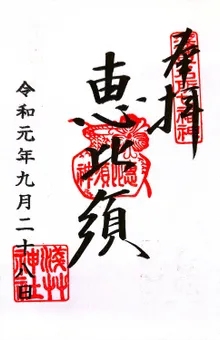 奉拝
恵比須
令和元年九月二十八日
浅草神社